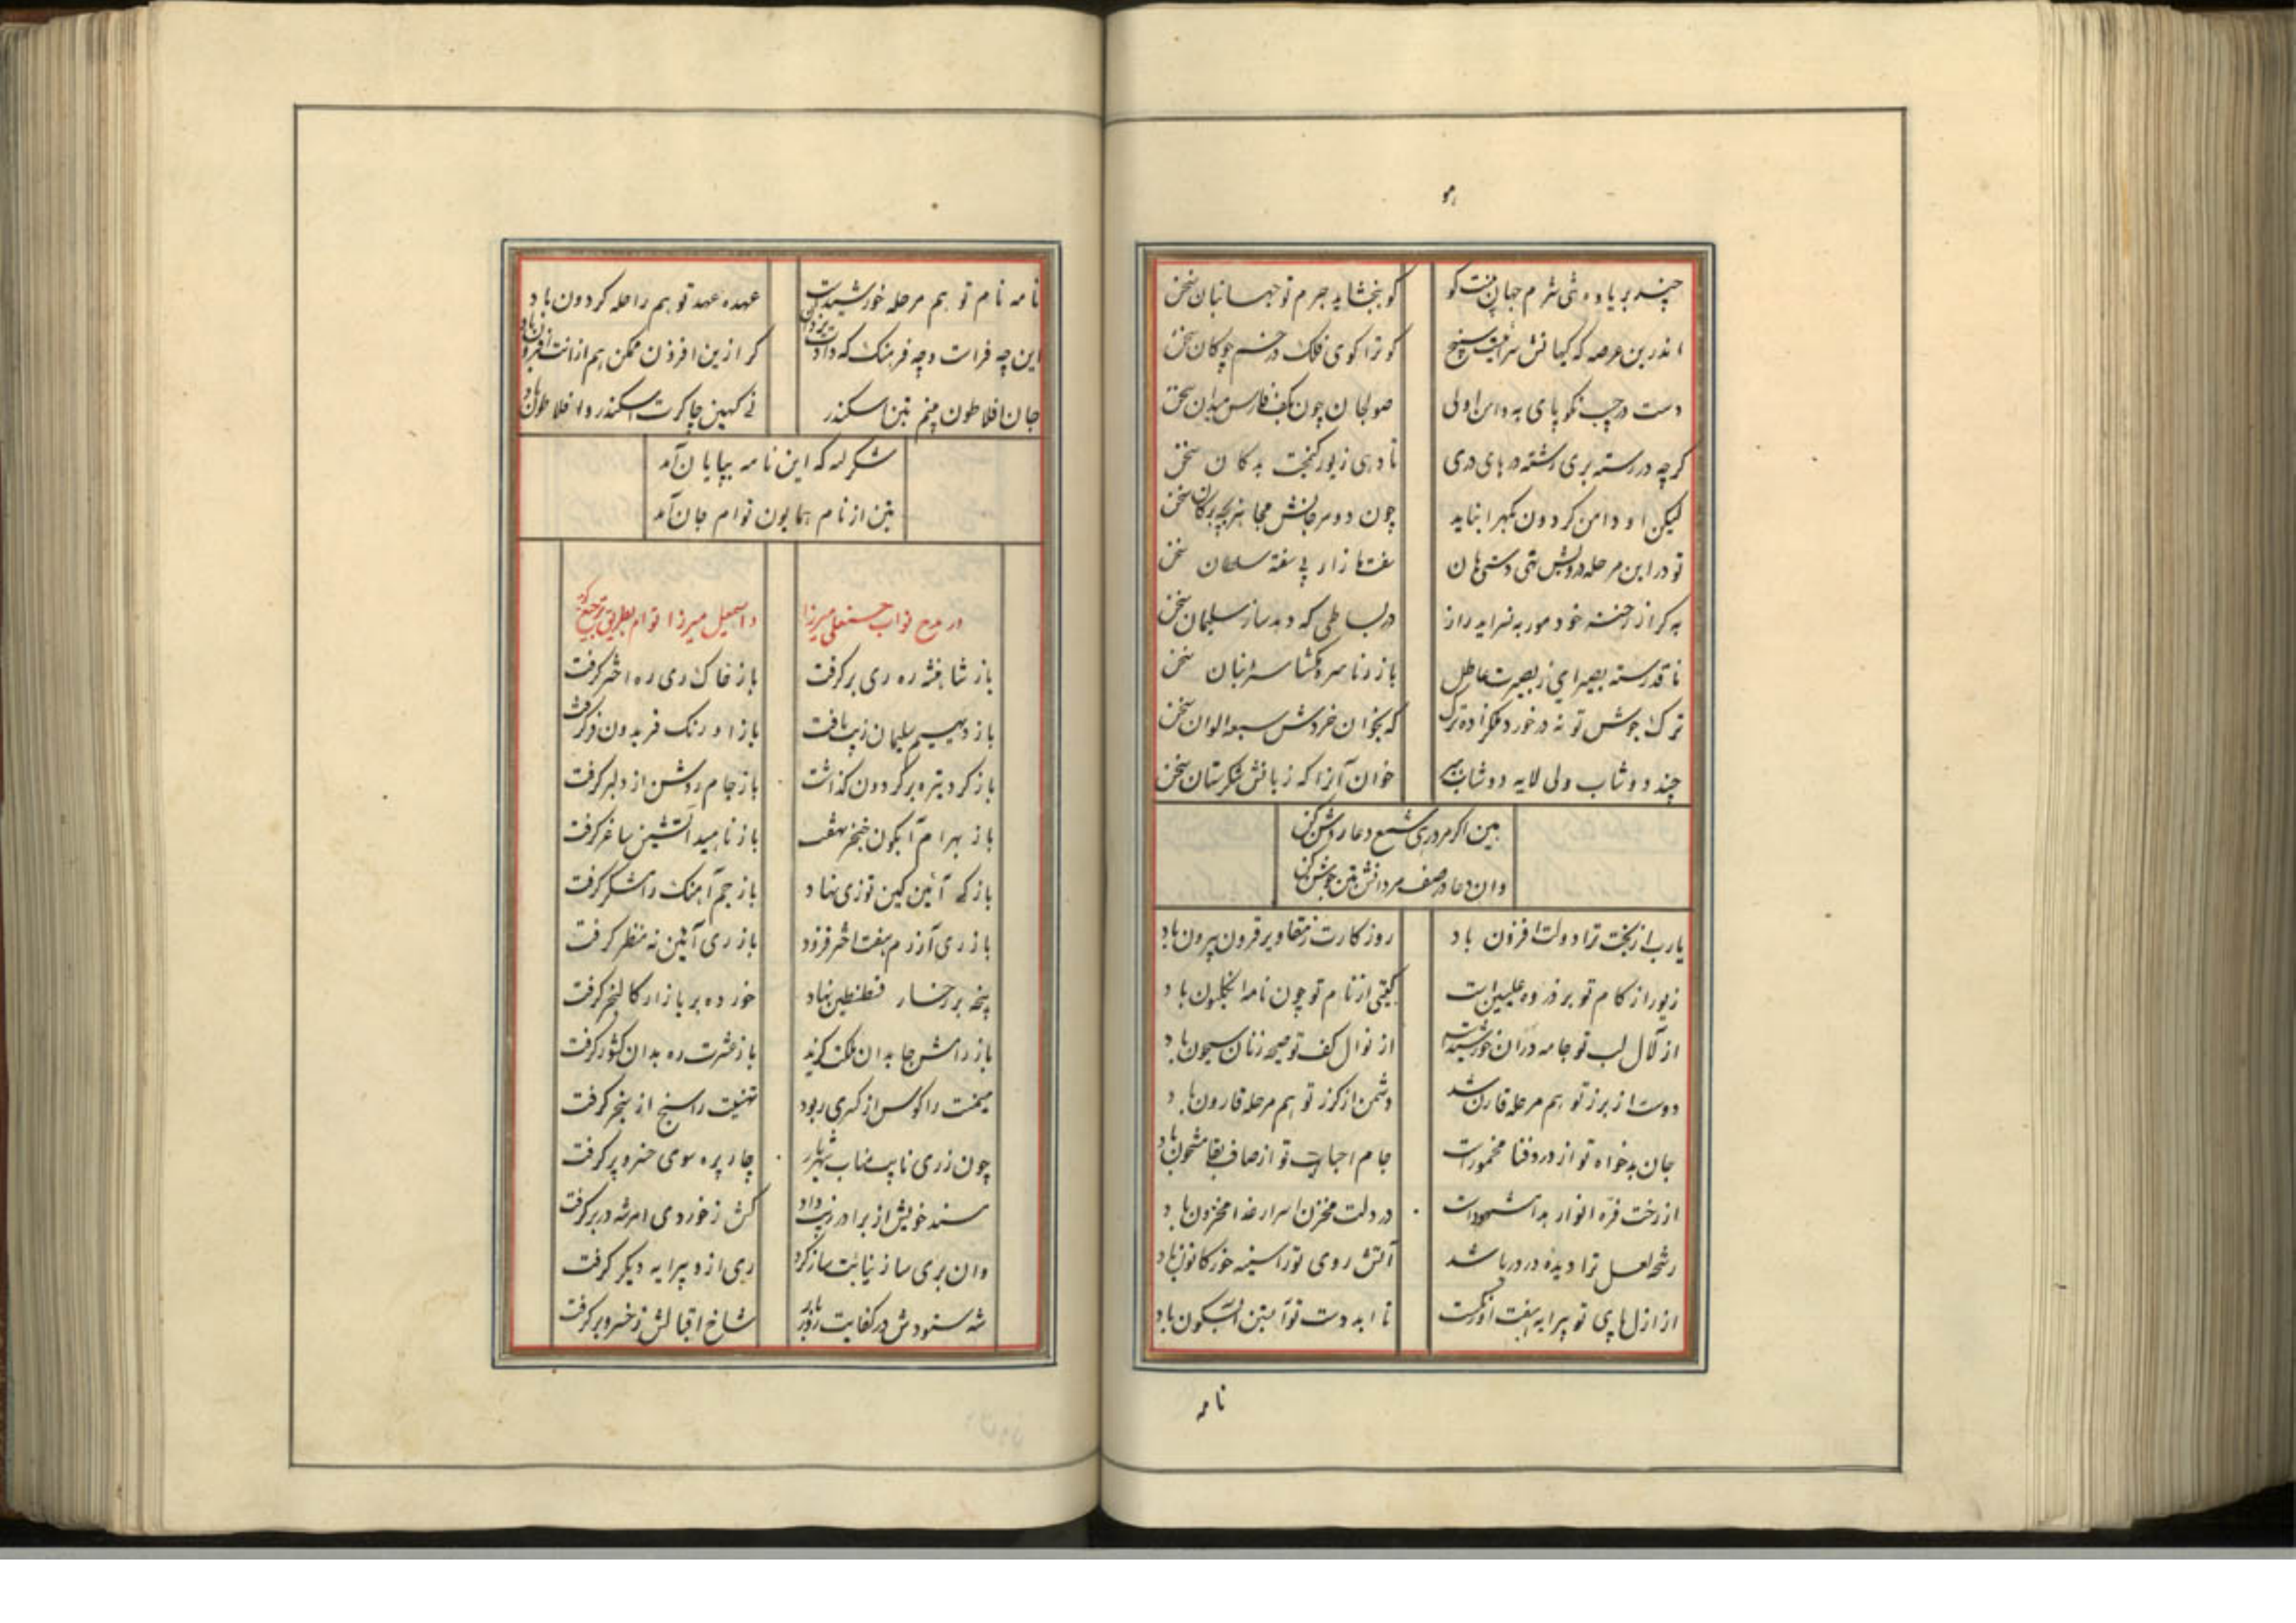 چند بر یاوه شی شرم جهان گفت کو
کو ببخشاید جرم تو جهانبان سخن
اندرین عرصه که کیهانش
کو ترا کوی فلک در خم چوکان سخن
دست در جیب نکو پای به دامن اولی
صولجان چون بکف فارس میدان سخن
کرچه در رسته بری رشته درهای دری
تا دهی زیور کنجت بدکان سخن
لیکن او دامن کردون کهر انباید
چون دو مرجانش سخن
تو در این مرحله درویش تهی دستی هان
سفتها زار پی سفته سلطان سخن
به کر از رخنه خود مور به نسراید راز
در بساطی که دهد ساز سلیمان سخن
ناقد رسته بصیر ای ز بصیرت عاطل
باز رنا سره مکشا سر انبان سخن
ترک جوش تو نه در خورد ملکزاده ترک
که بخوان خردش سبعه الوان سخن
چند دوشاب ولی لابه دوشاب
خوان آنرا که زبانش شکرستان سخن
هین اکر مرد رهی شمع دعا روشن کن
وان دعا در صف مردانش بتن جوشن کن
یارب از بخت ترا دولت افزون باد
روز کارت ز مقاویر قرون بیرون باد
زیور از کام تو بر ذروه علیین است
کیتی از نام تو چون نامه انکلیون باد
از لآل لب تو جامه دران خورشیدست
از نوال کف تو صیحه زنان سیحون باد
دوست از برز تو هم مرحله قارن شد
دشمن از کرز تو هم مرحله قارون باد
جان بدخواه تو از درد فنا مخمورست
جام احبابت تو از صاف بقا مشحون باد
از رخت فره انوار بدا مشهودات
در دلت مخزن اسرار خدا مخزون باد
رشحه لعل ترا دیده در دریا شد
آتش روی تو را سینه خور کانون باد
از ازل پای تو پیرایه هفت اورنکست
تا ابد دست تو آبستن آبسکون باد
نامه
نامه نام تو هم مرحله خورشیدست
عهده عهد تو هم راحله کردون باد
این چه فرات و چه فرهنک که دادت یزدان
کر ازین افزون ممکن هم ازانت افزون باد
جان افلاطون بینم بتن اسکندر
نی کهین چاکرت اسکندر و افلاطون باد
شکر لله که این نامه بپایان آمد
بتن از نام همایون توام جان آمد
در مدح نواب حسنعلی میرزا
و اسمعیل میرزا توام بطریق ترجیع کوید
باز شاهنشه ره ری بر کرفت
باز خاک ری ره اختر کرفت
باز دیهیم سلیمان زیب یافت
باز اورنک فریدون فر کرفت
باز کرد تیره بر کردون کذاشت
باز جام روشن از دلبر کرفت
باز بهرام آبکون خنجر نهفت
باز ناهید آتشین ساغر کرفت
باز که آئین کین توزی نهاد
باز جم آهنک رامشکر کرفت
باز ری آزرم هفت اختر فزود
باز ری آئین نه منظر کرفت
پنجه بر رخسار قسطنطین نهاد
خورده بر بازار کالنجر کرفت
باز رامش جا بدان ملکت کزید
باز عشرت ره بدان کشور کرفت
میمنت را کوس از کسری ربود
تهنیت را سنج از سنجر کرفت
چون ز ری نایب مناب شهریار
چار پره سوی خسرو پر کرفت
مسند خویش از برادر زیب داد
کش ز خوردی امر شه در بر کرفت
وان بری ساز نیابت ساز کرد
ری ازو پیرایه دیکر کرفت
شه ستودش در کفایت
شاخ اقبالش ز خسرو بر کرفت